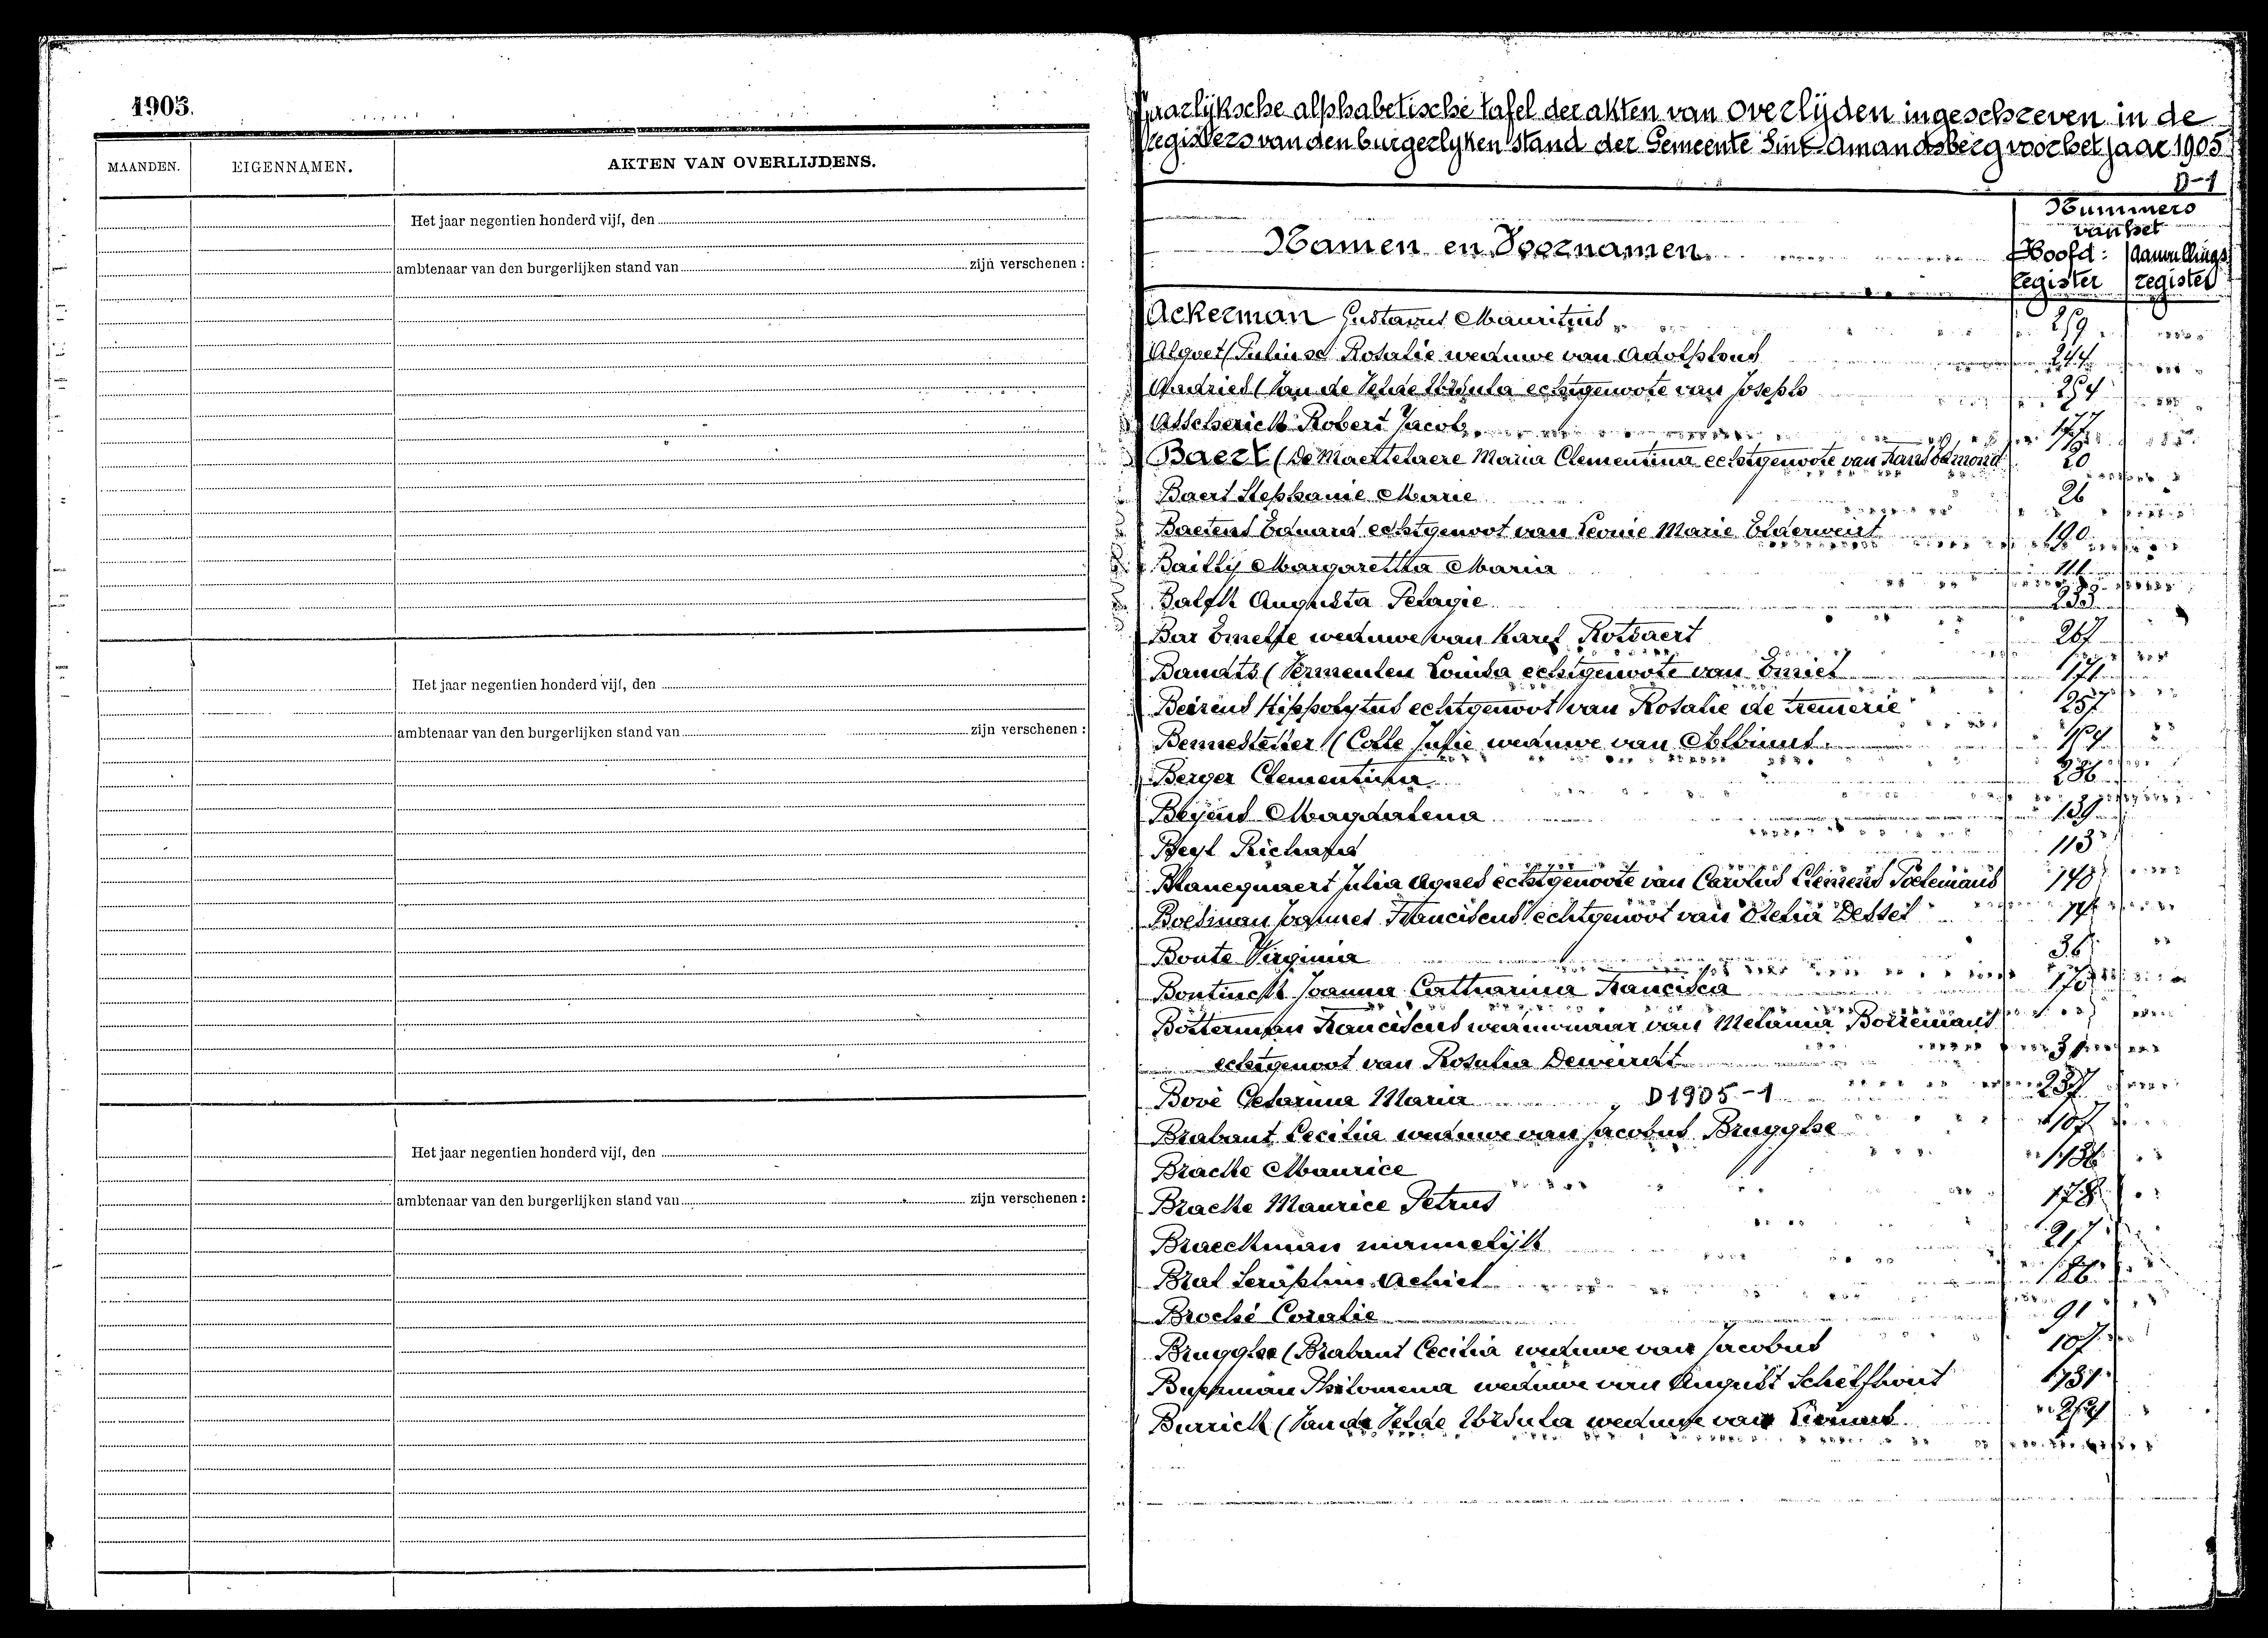 1905.
MAANDEN. EIGENNAMEN. AKTEN VAN OVERLIJDENS.
Het jaar negentien honderd vijf, den
ambtenaar van den burgerlijken stand van zijn verschenen :
Het jaar negentien honderd vijf, den
ambtenaar van den burgerlijken stand van zijn verschenen :
Het jaar negentien honderd vijf, den
ambtenaar van den burgerlijken stand van zijn verschenen :
Jaarlijksche alphabetische tafel der akten van overlijden ingeschreven in de
registers van den burgerlyken stand der Gemeente Sint Amandsberg voor het jaar 1905
D-1
Namen en Voornamen
Nummers
van het
Hoofd: Aanvullings
register register
Ackerman Gustavus Mauritius 259
Alquet ( Rosalie weduwe van Adolphus 244
Andries (Van de Velde Ursula echtgenoote van Joseph 254
Asscherick Robert Jacob 177
Baert (De Maertelaere Maria Clementina echtgenoote van Karel Edmond 20
Baert Stephanie Marie 26
Baetens Eduard echtgenoot van Leonie Marie Elderweirt 190
Bailly Margaretha Maria
Balfft Augusta Pelagie
Bar Emelie weduwe van Karel Rotsaert 267
Bauchts (Vermeulen Louisa echtgenoote van Emiel 171
Beirens Hippolytus echtgenoot van Rosalie de Cremerie 257
Bennesteter (Colle Julie weduwe van Albinus
Berger Clementina 236
Beyens Magdalena 139
Beyl Richard 113
Blancquaert Julia Agnes echtgenoote van Carolus Clemens Poelemans 148
Boelman Joannes Franciscus echtgenoot van Stella Dessel
Bonte Virginia 36
Bontinck Joanna Catharina Francisca 170
Botterman Franciscus weduwnaar van Melania Borremans
echtgenoot van Rosalia Deweirdt 3
Bové Cesarina Maria D1905-1 237
Brabant Cecilia weduwe van Jacobus Brugghe 107
Bracke Maurice 136
Bracke Maurice Petrus 178
Braeckman mannelijk 217
Bral Seraphin Achiel 186
Broché Coralie 91
Brugghe (Brabant Cecilia weduwe van Jacobus 107
Buysman Philomena weduwe van August Schelfhout
Burrick (Van de Velde Ursula weduwe van Livinus 254